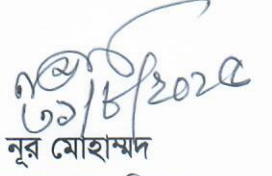 ৩১/৮/২০২৫
নূর মোহাম্মদ